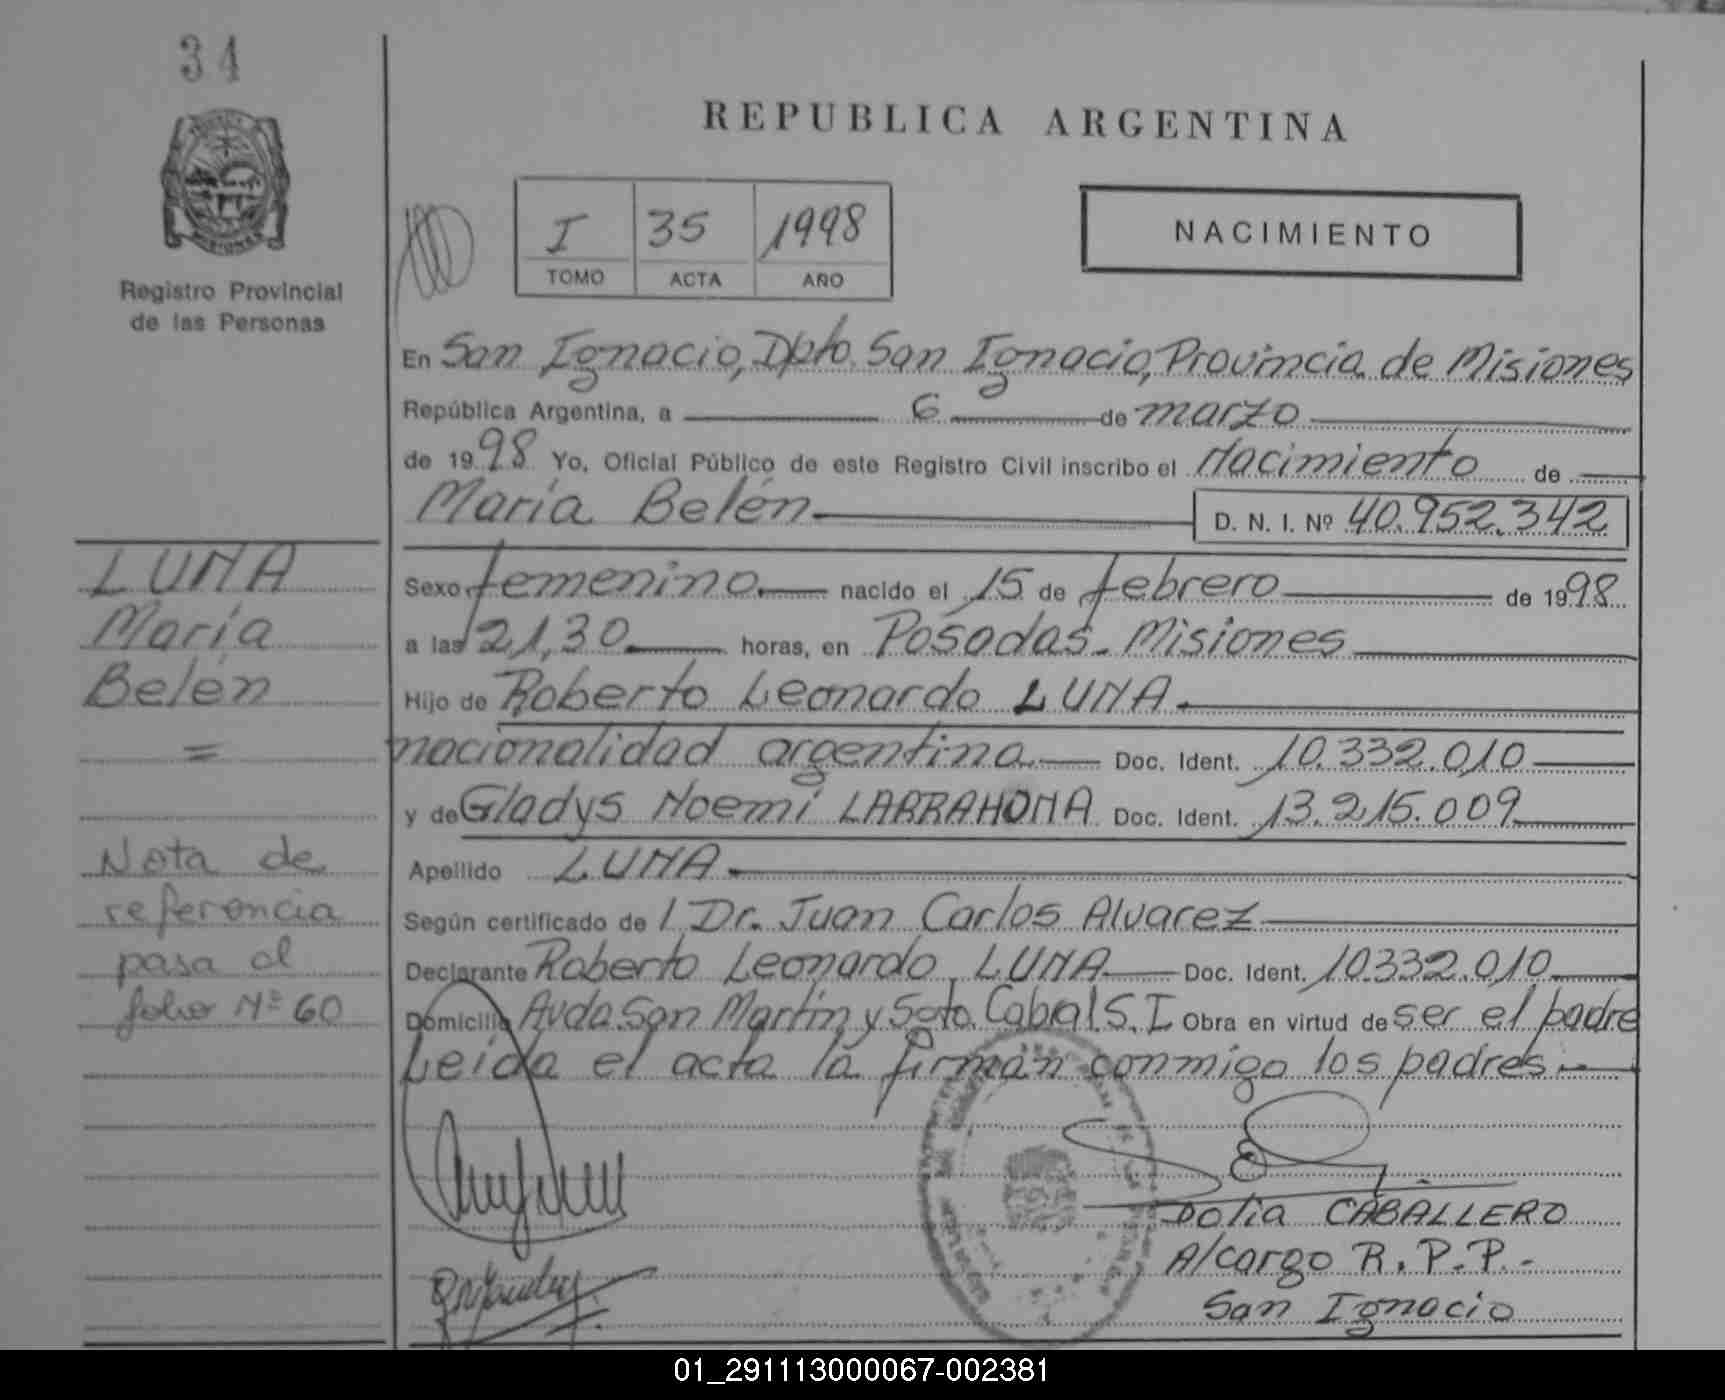 34
REPUBLICA ARGENTINA
I 35 1998
TOMO ACTA AÑO
NACIMIENTO
MISIONES
Registro Provincial
de las Personas
En San Ignacio, Dpto. San Ignacio, Provincia de Misiones
República Argentina, a 6 de marzo
de 1998 Yo, Oficial Público de este Registro Civil inscribo el Nacimiento de
María Belén D. N. I. Nº 40.952.342
LUNA
María
Belén
=
Sexo femenino nacido el 15 de febrero de 1998
a las 21,30 horas, en Posadas - Misiones
Hijo de Roberto Leonardo LUNA
nacionalidad argentina Doc. Ident. 10.332.010
y de Gladys Noemí LARRAHONA Doc. Ident. 13.215.009
Apellido LUNA
Según certificado de 1 Dr. Juan Carlos Alvarez
Declarante Roberto Leonardo LUNA Doc. Ident. 10.332.010
Domicilio Avda. San Martín y Sgto. Cabral S. I. Obra en virtud de ser el padre
Leída el acta la firman conmigo los padres
Nota de
referencia
pasa al
folio Nº 60
CABALLERO
A/cargo R. P. P. -
San Ignacio
01_291113000067-002381